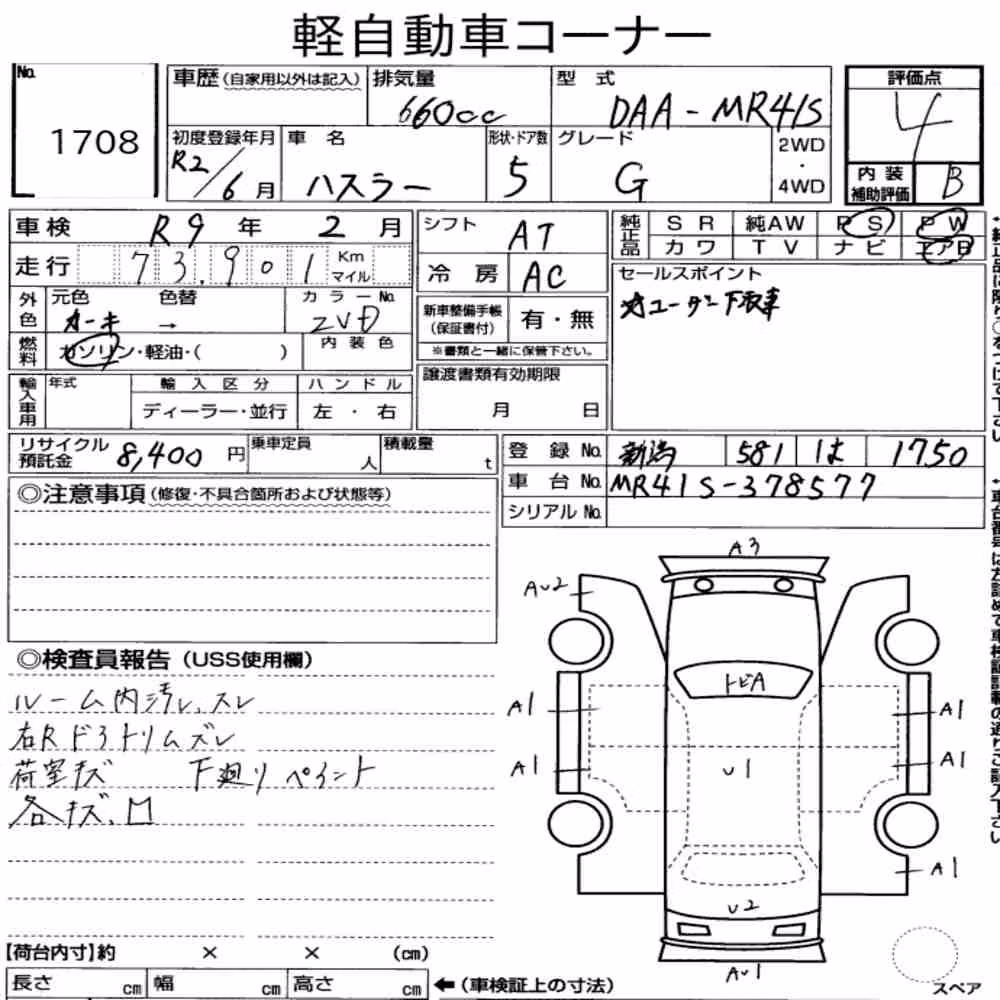 軽自動車コーナー
No.
1708
車歴(自家用以外は記入)
排気量
660cc
型式
DAA-MR41S
評価点
4
初度登録年月
R2/6月
車名
ハスラー
形状・ドア数
5
グレード
G
2WD
・
4WD
内装
補助評価
B
車検 R9年 2月
シフト
AT
純正品
SR 純AW PS PW
カワ TV ナビ エアB
走行 73,901 Km
マイル
冷房
AC
セールスポイント
外色
元色 色替
カーキ →
カラーNo.
ZVD
新車整備手帳
(保証書付)
有・無
※書類と一緒に保管下さい。
ユーザー下取車
燃料
ガソリン・軽油・( )
内装色
輸入車用
年式
輸入区分
ディーラー・並行
ハンドル
左・右
譲渡書類有効期限
月 日
リサイクル
預託金
8,400円
乗車定員
人
積載量
t
登録No. 新潟 581 は 1750
車台No. MR41S-378577
シリアルNo.
◎注意事項(修復・不具合箇所および状態等)
◎検査員報告(USS使用欄)
ルーム内汚レ、スレ
右Rドアトリムズレ
荷室キズ 下廻りペイント
各キズ、凹
A3
AU2
トビA
A1
A1
A1
A1
U1
A1
U2
AU1
スペア
【荷台内寸】約 × × (cm)
長さ cm 幅 cm 高さ cm ←(車検証上の寸法)